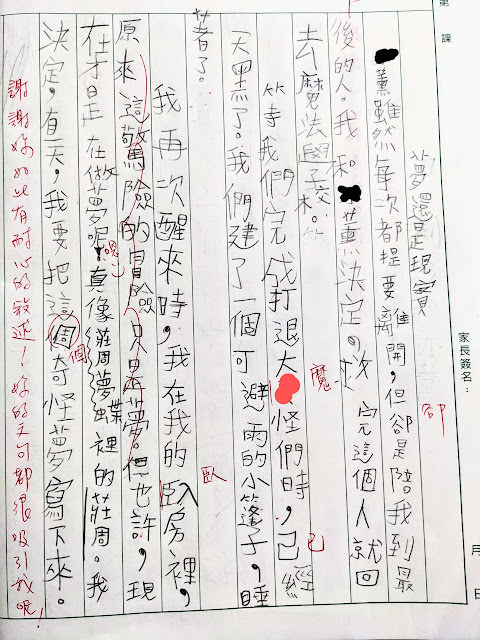 第 課
夢還是現實
薰雖然每次都提要離開，但卻是陪我到最
後的人。我和薰決定，救完這個人就回
去魔法學校。
等我們完成打退大怪們時，已經
天黑了。我們建了一個可避雨的小篷子，睡
著了。
我再次醒來時，我在我的臥房裡，
原來這驚險的冒險只是夢。但也許，現
在才是在做夢呢！真像莊周夢蝶裡的莊周。我
決定，有一天，我要把這個奇怪夢寫下來。
謝謝妳如此有耐心的敘述！妳的天可都很吸引我呢！
卻
魔
已
臥
個
家長簽名：
月 日